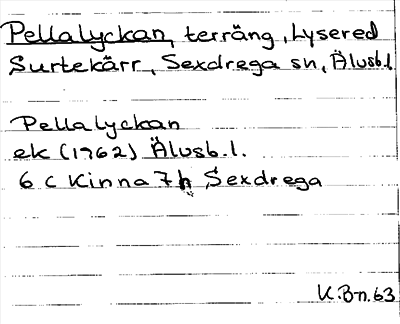 Pellalyckan, terräng, Lysered
Surtekärr, Sexdrega sn, Älvsb.l.
Pellalyckan
ek (1962) Älvsb.l.
6 C Kinna 7 h Sexdrega
K.Bn.63